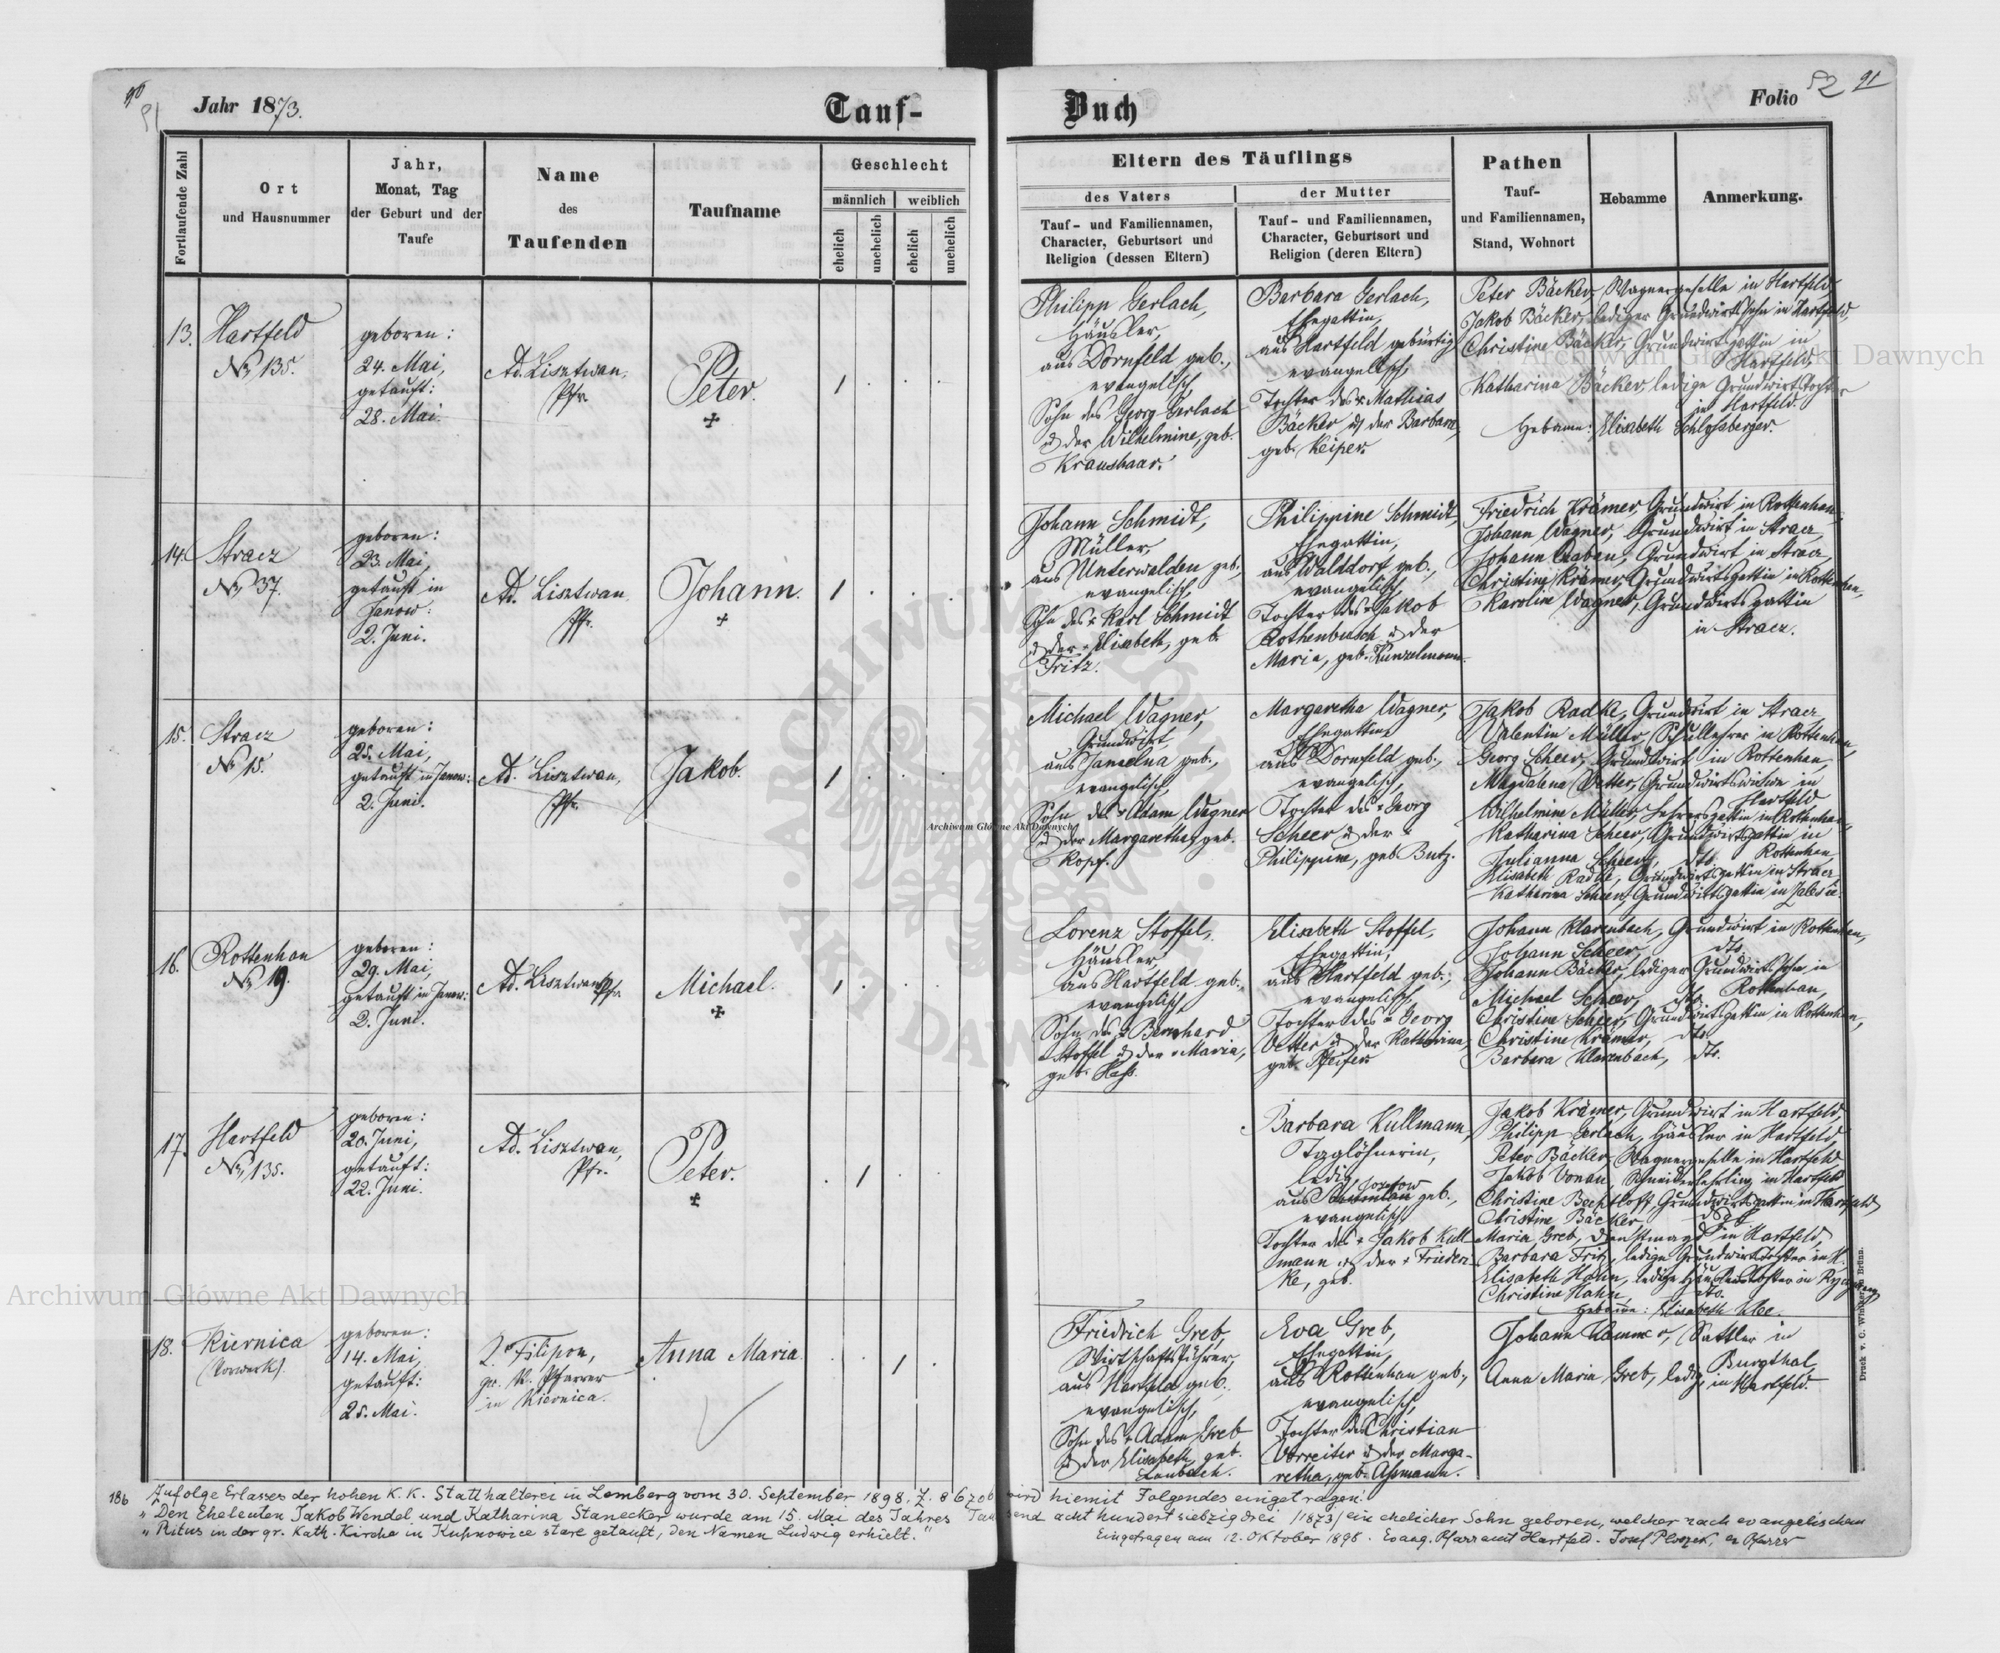 Jahr 1873.
Tauf-
Buch
Folio
52 91
Fortlaufende Zahl
Ort
und Hausnummer
Jahr,
Monat, Tag
der Geburt und der
Taufe
Name
des
Taufenden
Taufname
Geschlecht
männlich
weiblich
ehelich
unehelich
ehelich
unehelich
Eltern des Täuflings
des Vaters
Tauf- und Familiennamen,
Character, Geburtsort und
Religion (dessen Eltern)
der Mutter
Tauf- und Familiennamen,
Character, Geburtsort und
Religion (deren Eltern)
Pathen
Tauf-
und Familiennamen,
Stand, Wohnort
Hebamme
Anmerkung.
13.
Hartfeld
No 135.
geboren:
24. Mai,
getauft:
28. Mai.
Ad. Lisztwan,
Pfr.
Peter.
1
Philipp Gerlach,
Häusler,
aus Dornfeld geb.,
evangelisch,
Sohn des Georg Gerlach
u. der Wilhelmine, geb.
Kraushaar.
Barbara Gerlach,
Ehegattin,
aus Hartfeld gebürtig
evangelisch,
Tochter des + Mathias
Bäcker u. der Barbara,
geb. Keiper.
Peter Bäcker, Wagnergeselle in Hartfeld,
Jakob Bäcker, lediger Grundwirtssohn in Hartfeld,
Christine Bäcker, Grundwirtsgattin in
Hartfeld,
Katharina Bäcker, ledige Grundwirtstochter
in Hartfeld.
Hebamme: Elisabeth Schlossberger.
14.
Stracz
No 37.
geboren:
23. Mai,
getauft in
Janow:
2. Juni.
Ad. Lisztwan
Pfr.
Johann.
1
Johann Schmidt,
Müller,
aus Unterwalden geb.,
evangelisch,
Sohn des + Karl Schmidt
u. der + Elisabeth, geb.
Fritz.
Philippine Schmidt,
Ehegattin,
aus Walddorf geb.,
evangelisch,
Tochter des + Jakob
Rothenbusch u. der
Maria, geb. Kunzelmann.
Friedrich Krämer, Grundwirt in Rottenhan,
Johann Wagner, Grundwirt in Stracz,
Johann Graban, Grundwirt in Stracz,
Christine Krämer, Grundwirtsgattin in Rottenhan,
Karoline Wagner, Grundwirtsgattin
in Stracz.
15.
Stracz
No 15.
geboren:
25. Mai,
getauft in Janow:
2. Juni.
Ad. Lisztwan,
Pfr.
Jakob.
1
Michael Wagner,
Grundwirt,
aus Jamelna geb.,
evangelisch,
Sohn des + Adam Wagner
u. der Margaretha, geb.
Kopf.
Margaretha Wagner,
Ehegattin,
aus Dornfeld geb.,
evangelisch,
Tochter des + Georg
Scheer u. der +
Philippine, geb. Butz.
Jakob Radke, Grundwirt in Stracz
Valentin Müller, Schullehrer in Rottenhan,
Georg Scheer, Grundwirt in Rottenhan,
Magdalena Vetter, Grundwirtswitwe in
Hartfeld
Wilhelmine Müller, Lehrersgattin in Rottenhan,
Katharina Scheer, Grundwirtsgattin in
Rottenhan,
Julianna Scheer, dto.
Elisabeth Radke, Grundwirtsgattin in Stracz
Katharina Scheer, Grundwirtsgattin in
16.
Rottenhan
No 19.
geboren:
29. Mai,
getauft in Janow:
2. Juni.
Ad. Lisztwan Pfr.
Michael.
1
Lorenz Stoffel,
Häusler
aus Hartfeld geb.,
evangelisch
Sohn des + Bernhard
Stoffel u. der + Maria,
geb. Hass.
Elisabeth Stoffel,
Ehegattin,
aus Hartfeld geb.,
evangelisch,
Tochter des + Georg
Vetter u. der Katharina,
geb. Pfeifer.
Johann Klarenbach, Grundwirt in Rottenhan,
Johann Scheer, dto.
Johann Bäcker, lediger Grundwirtssohn in
Rottenhan,
Michael Scheer, dto.
Christine Scheer, Grundwirtsgattin in Rottenhan,
Christine Krämer, dto.
Barbara Klarenbach, dto.
17.
Hartfeld
No 135.
geboren:
20. Juni,
getauft:
22. Juni.
Ad. Lisztwan,
Pfr.
Peter.
1
Barbara Kullmann,
Taglöhnerin,
ledig,
Jozefow
aus geb.,
evangelisch
Tochter des + Jakob Kull-
mann u. der + Friederi-
ke, geb.
Jakob Krämer, Grundwirt in Hartfeld,
Philipp Gerlach, Häusler in Hartfeld
Peter Bäcker, Wagnergeselle in Hartfeld
Jakob Vonau, Schneiderlehrling in Hartfeld
Christine Bechtloff, Grundwirtsgattin in Hartfeld
Christine Bäcker
Maria Greb, Dienstmagd in Hartfeld,
Barbara Fritz, ledige Grundwirtstochter in H.
Elisabeth Hahn, ledige Häuslerstochter in
Christine Hahn, dto.
Hebamme: Elisabeth Klee.
18.
Kiernica
(Vorwerk).
geboren:
14. Mai,
getauft:
25. Mai.
Filipon,
gr. k. Pfarrer
in Kiernica.
Anna Maria
1
Friedrich Greb,
Wirtschaftsführer,
aus Hartfeld geb.,
evangelisch,
Sohn des + Adam Greb
u. der Elisabeth geb.
Laubach.
Eva Greb,
Ehegattin,
aus Rottenhan geb.,
evangelisch,
Tochter des Christian
Vorreiter u. der Marga-
retha, geb. Assmann.
Johann Kammer, Sattler in
Burgthal,
Anna Maria Greb, ledig, in Hartfeld.
18b Zufolge Erlasses der hohen K. K. Statthalterei in Lemberg vom 30. September 1898, Z. 86700 wird hiemit Folgendes eingetragen:
„Den Eheleuten Jakob Wendel und Katharina Stanecker wurde am 15. Mai des Jahres Tausend acht hundert siebzig drei /1873/ ein ehelicher Sohn geboren, welcher nach evangelischem
„Ritus in der gr. kath. Kirche in Kuhnowice stare getauft, den Namen Ludwig erhielt.“
Eingetragen am 12. Oktober 1898. Evang. Pfarramt Hartfeld. Josef Ploszek, ev Pfarrer
Druck v. C. Winiker in Brünn.
Archiwum Główne Akt Dawnych
Archiwum Główne Akt Dawnych
Archiwum Główne Akt Dawnych
ARCHIWUM GŁÓWNE AKT DAWNYCH